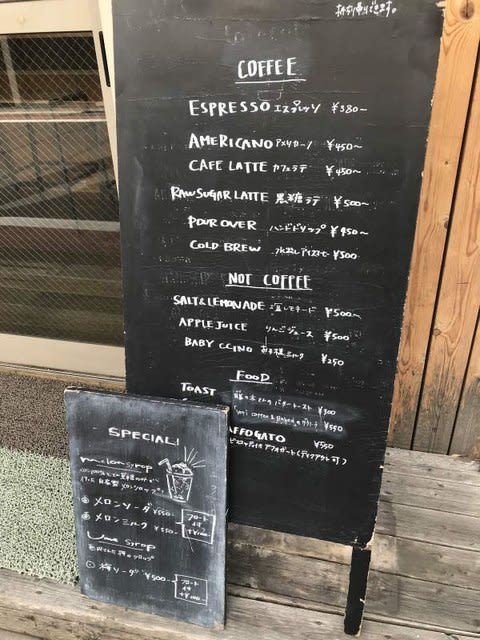 お持ち帰りできます。
COFFEE
ESPRESSO エスプレッソ ¥380~
AMERICANO アメリカーノ ¥450~
CAFE LATTE カフェラテ ¥450~
RAW SUGAR LATTE 黒糖ラテ ¥500~
POUR OVER ハンドドリップ ¥450~
COLD BREW 水出しアイスコーヒー ¥500
NOT COFFEE
SALT & LEMONADE 塩レモネード ¥500~
APPLE JUICE りんごジュース ¥500
BABY CCINO お子様ミルク ¥250
FOOD
TOAST バタートースト ¥300
¥550
AFFOGATO ¥550
アフォガート(テイクアウト可)
SPECIAL!
melon syrop
メロンシロップ
メロンソーダ ¥550~
メロンミルク ¥550~
フロート付き +¥100
Ume syrop
梅シロップ
梅ソーダ ¥500~
フロート付き +¥100